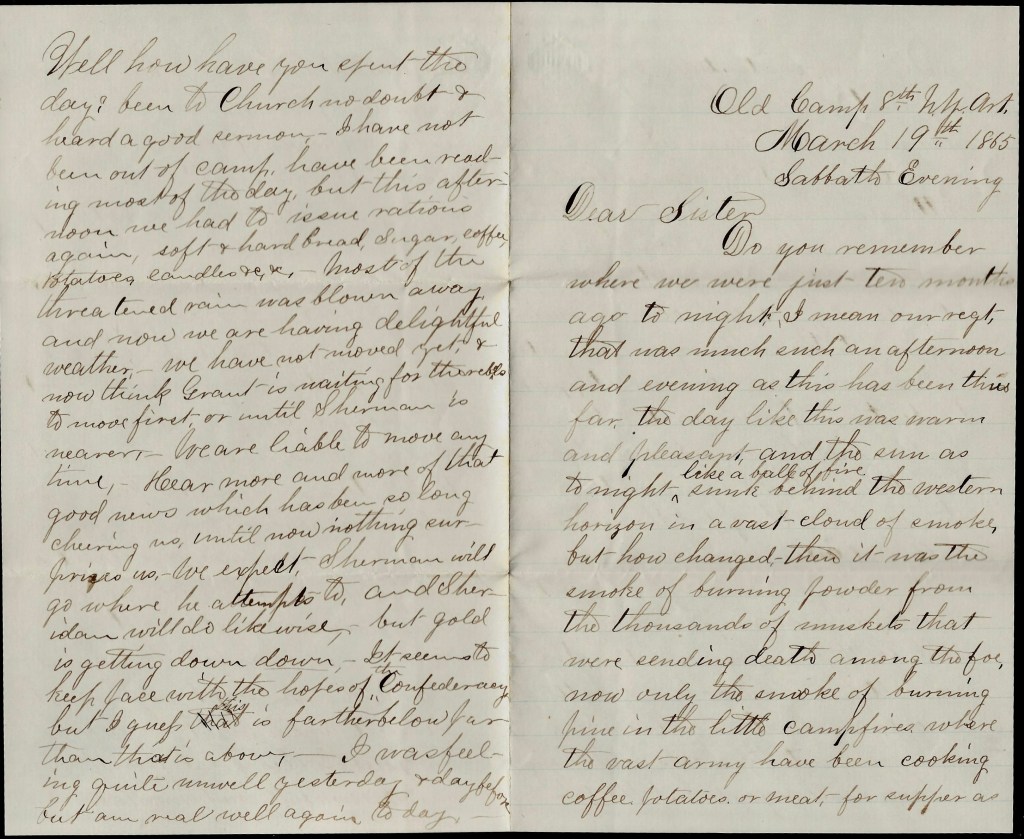 Old Camp 8th N.Y. Art.
March 19th 1865
Sabbath Evening
Dear Sister
Do you remember
where we were just ten months
ago to night, I mean our regt,
that was much such an afternoon
and evening as this has been thus
far. the day like this was warm
and pleasant, and the sun as
like a ball of fire
to night ‸ sunk behind the western
horizon in a vast cloud of smoke,
but how changed, then it was the
smoke of burning powder from
the thousands of muskets that
were sending death among the foe,
now only the smoke of burning
pine in the little campfires where
the vast army have been cooking
coffee, potatoes, or meat, for supper as
Well how have you spent the
day? been to Church no doubt &
heard a good sermon, – I have not
been out of camp, have been read-
ing most of the day, but this after-
noon we had to issue rations
again, soft & hard bread, Sugar, coffee,
potatoes, candles &c, &c, – Most of the
threatened rain was blown away
and now we are having delightful
weather, – we have not moved yet, &
now think Grant is waiting for the rebs
to move first, or until Sherman is
nearer, – We are liable to move any
time, – Hear more and more of that
good news which has been so long
cheering us, until now nothing sur-
prises us, – We expect, Sherman will
go where he attempts to, and Sher-
idan will do likewise, – but gold
is getting down down, – It seems to
keep pace with the hopes of the Confederacy
but I guess this is farther below par
than that is above, – I was feel-
ing quite unwell yesterday & day before
but am real well again to day –